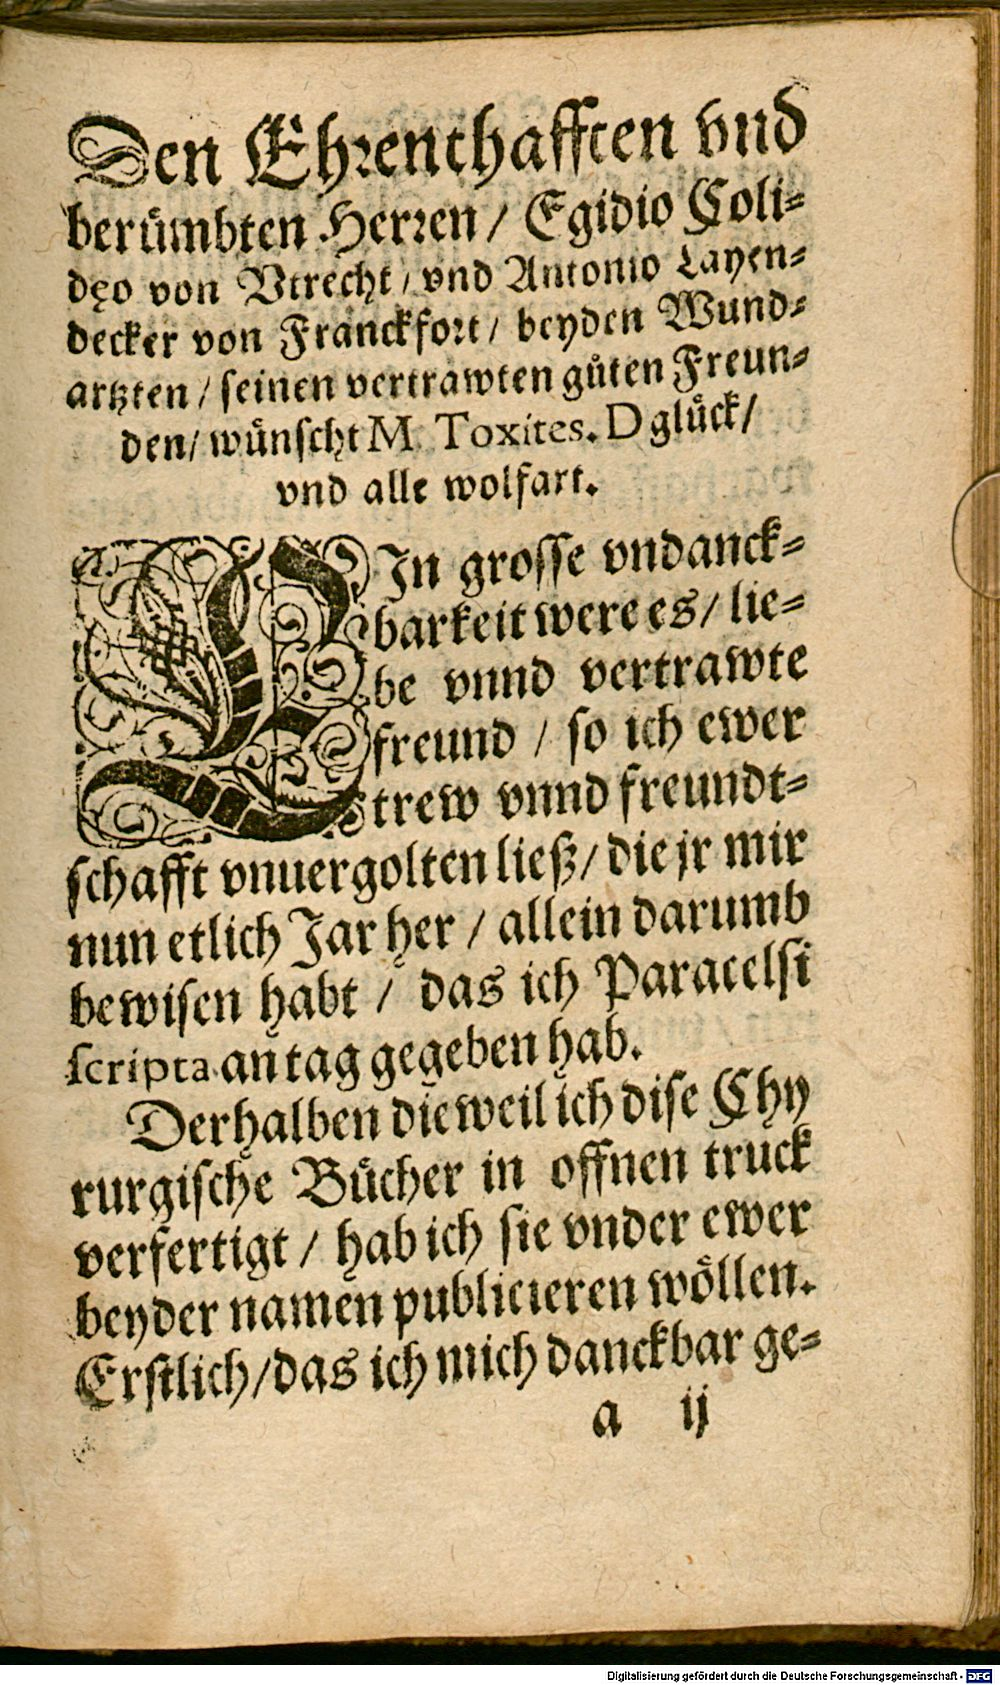 Den Ehrenthafften vnd
berümbten Herren / Egidio Coli⸗
dęo von Vtrecht / vnd Antonio Layen⸗
decker von Franckfort / beyden Wund⸗
artzten / seinen vertrawten gůten Freun⸗
den / wünscht M. Toxites. D glück /
vnd alle wolfart.
EIn grosse vndanck⸗
barkeit were es / lie⸗
be vnnd vertrawte
freund / so ich ewer
trew vnnd freundt⸗
schafft vnuergolten ließ / die jr mir
nun etlich Jar her / allein darumb
bewisen habt / das ich Paracelsi
scripta an tag gegeben hab.
Derhalben dieweil ich dise Chy
rurgische Bücher in offnen truck
verfertigt / hab ich sie vnder ewer
beyder namen publicieren wöllen.
Erstlich / das ich mich danckbar ge⸗
a ij
Digitalisierung gefördert durch die Deutsche Forschungsgemeinschaft - DFG